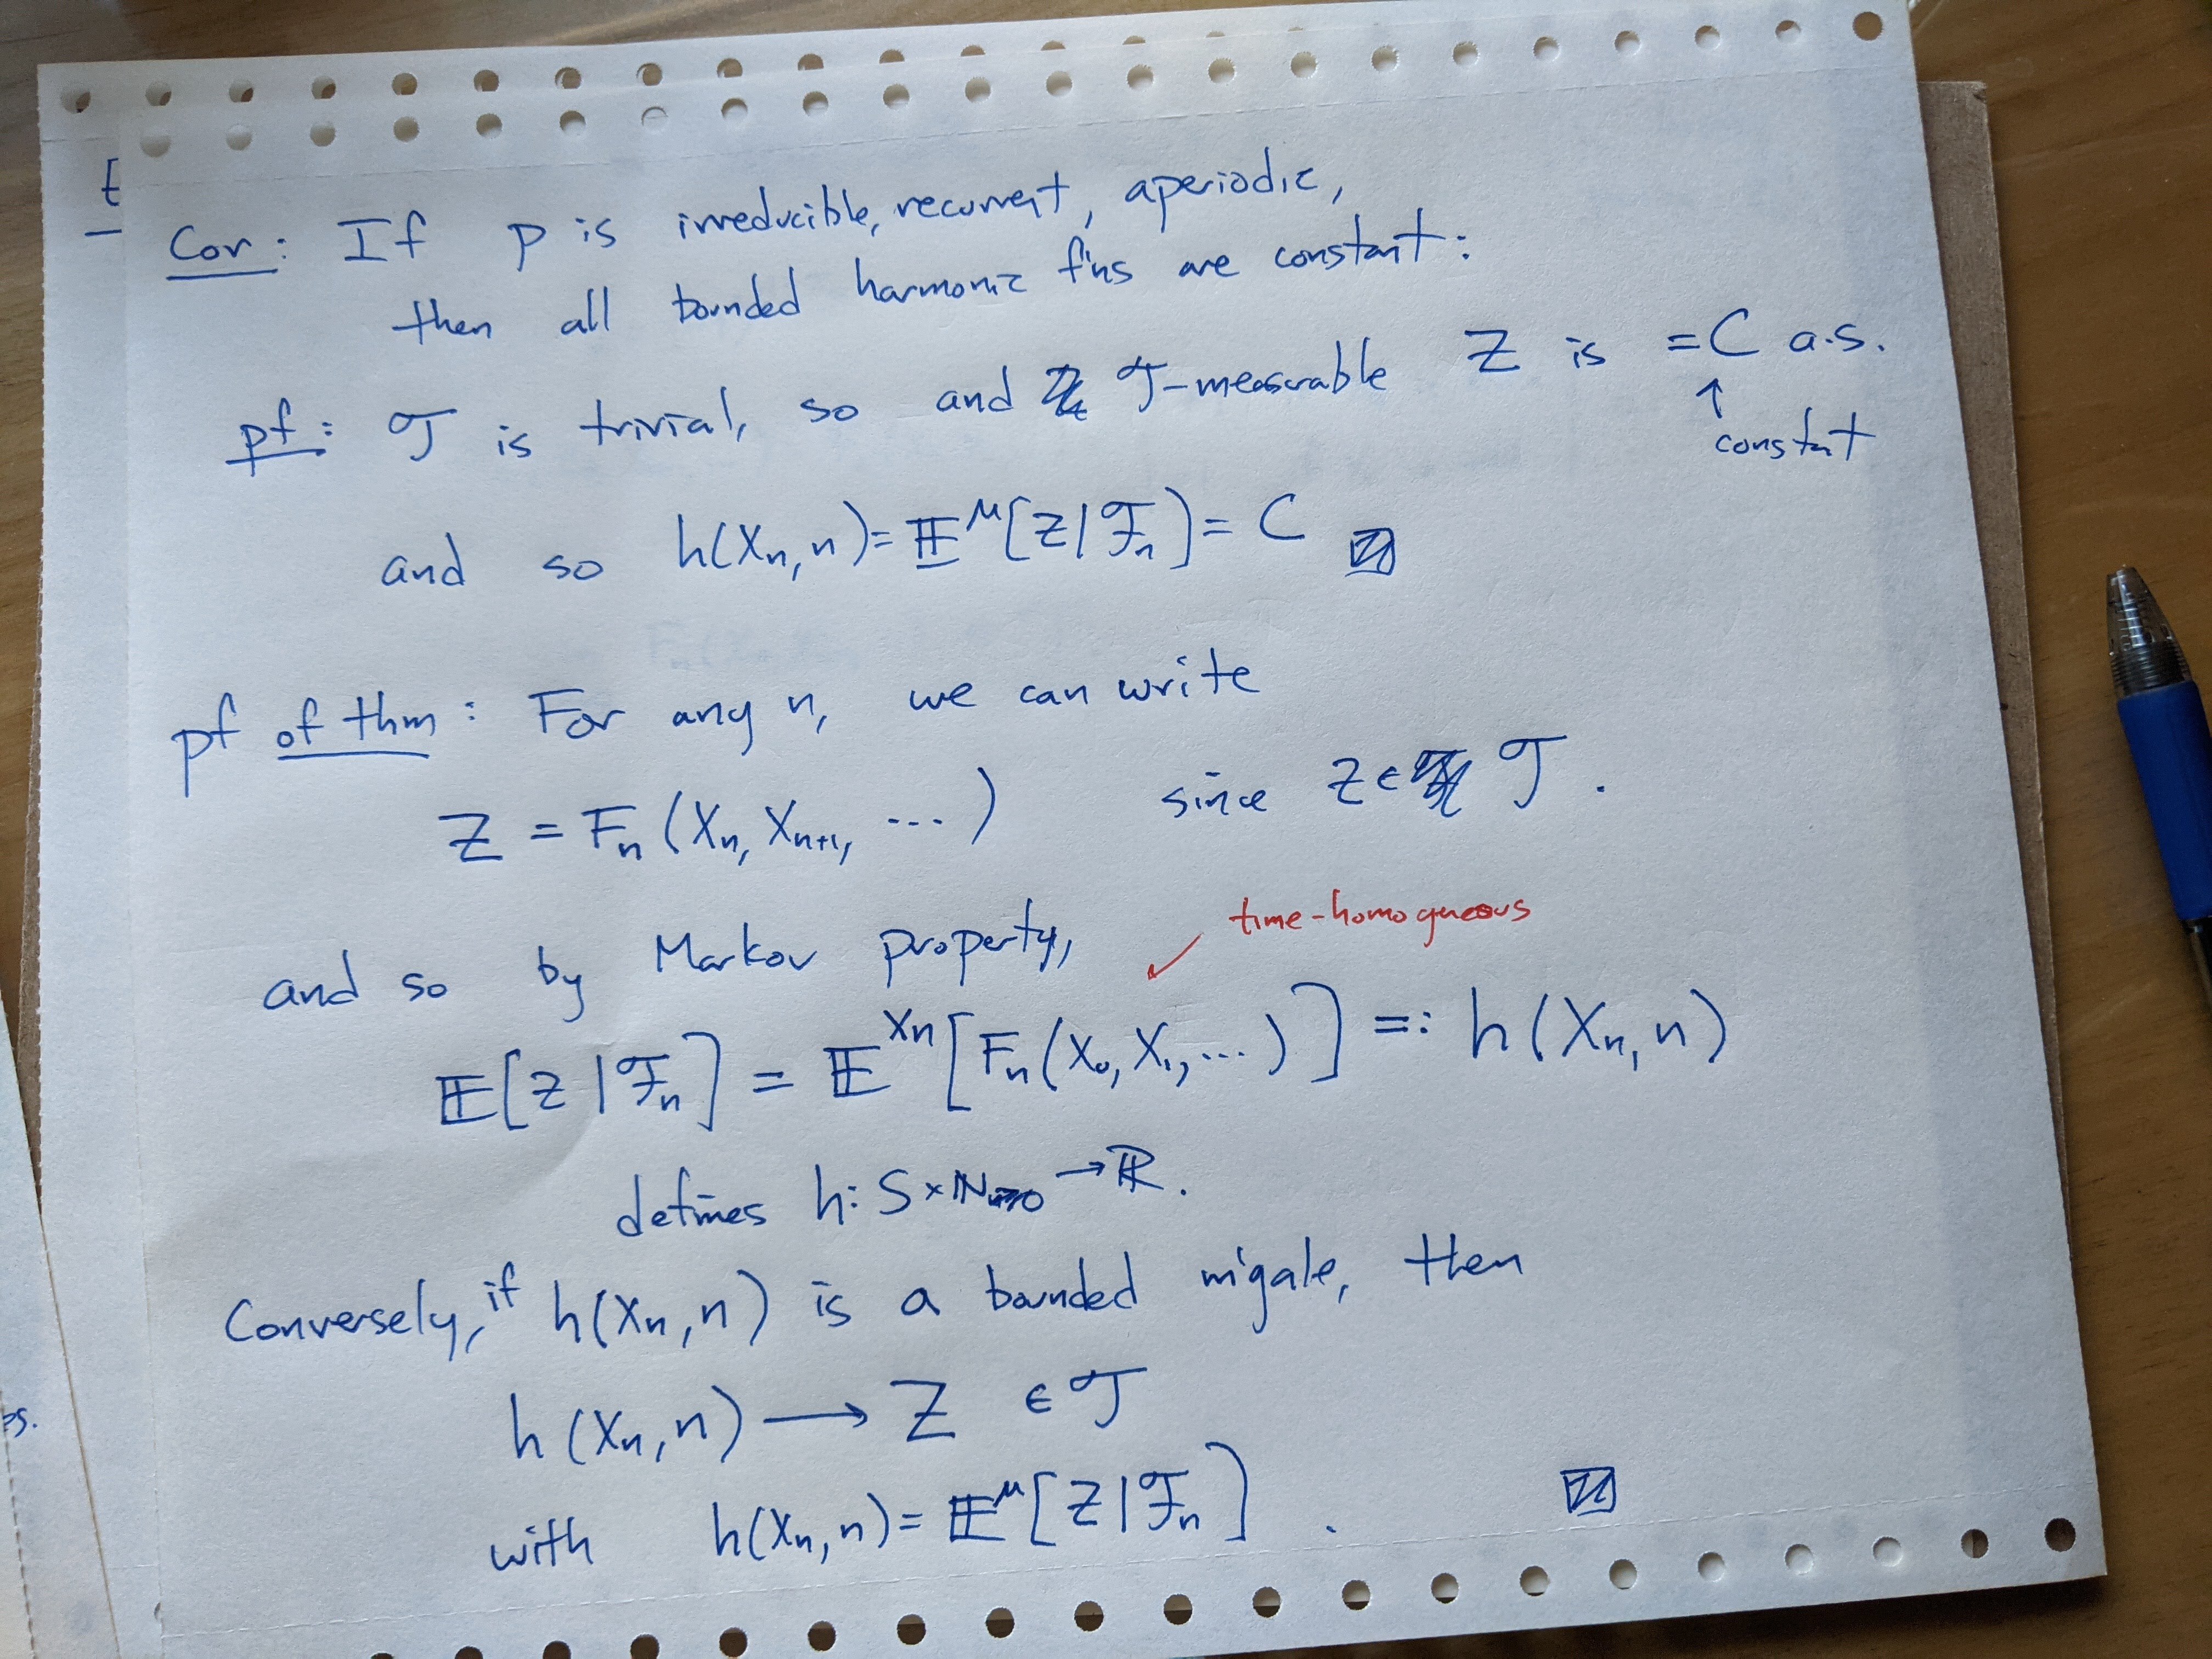 Cor: If p is irreducible, recurrent, aperiodic,
then all bounded harmonic f'ns are constant:
pf: 𝒯 is trivial, so and 𝒯-measurable Z is = C a.s.
↑
constant
and so h(Xₙ, n) = 𝔼^μ[Z | ℱₙ] = C
pf of thm: For any n, we can write
Z = Fₙ(Xₙ, Xₙ₊₁, ...) since Z ∈ 𝒯.
and so by Markov property,
time-homogneous
𝔼[Z | ℱₙ] = 𝔼^{Xₙ}[Fₙ(X₀, X₁, ...)] =: h(Xₙ, n)
defines h: S × ℕ≥0 → ℝ.
Conversely, if h(Xₙ, n) is a bounded m'gale, then
h(Xₙ, n) ⟶ Z ∈ 𝒯
with h(Xₙ, n) = 𝔼^μ[Z | ℱₙ].